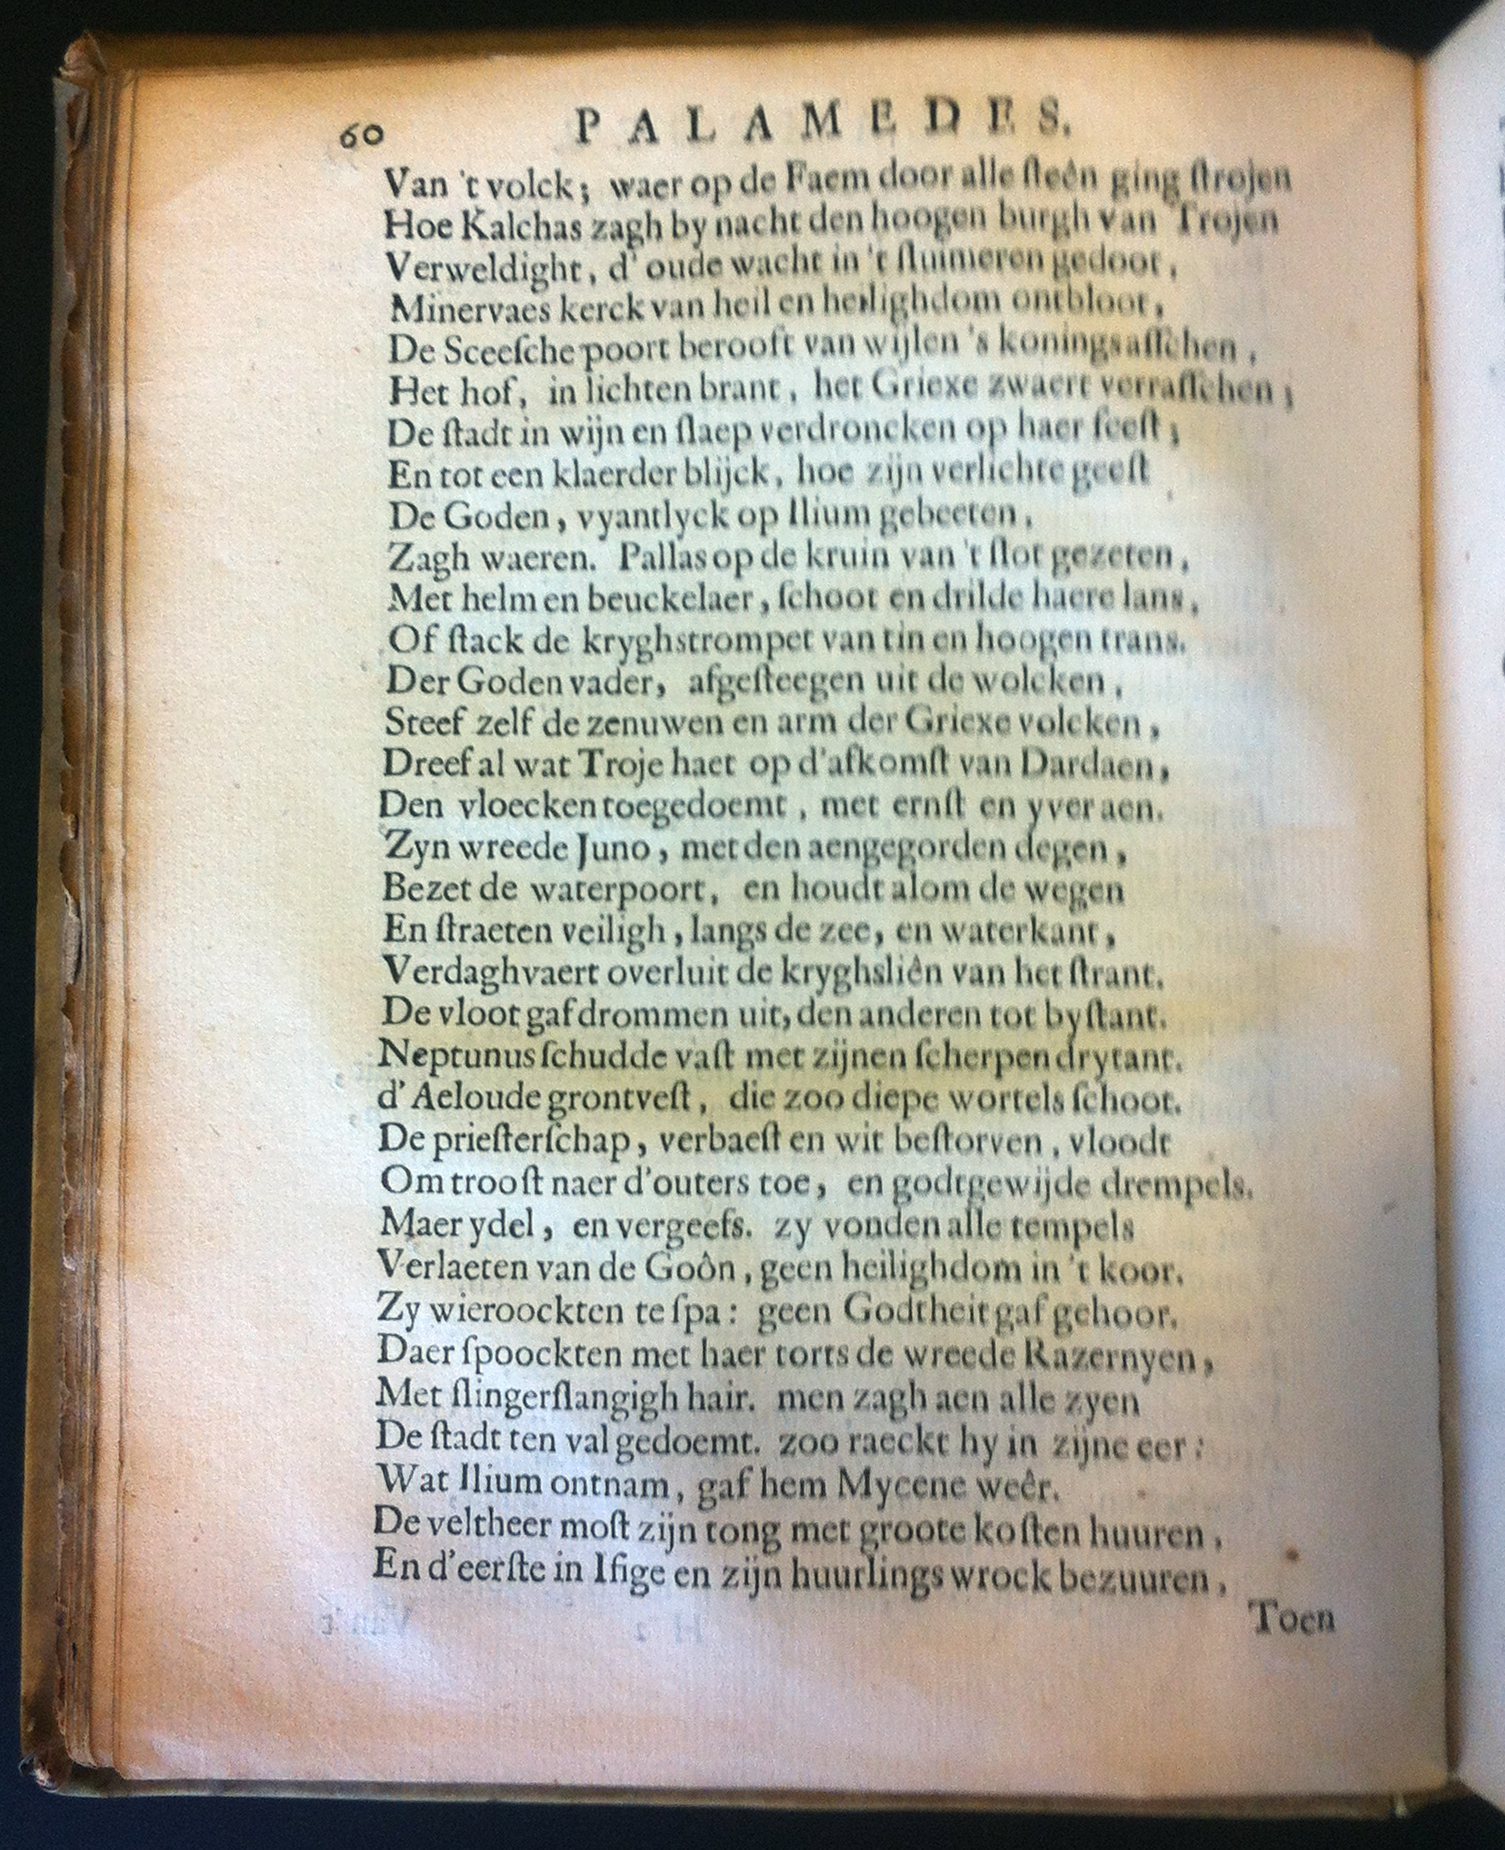 60 PALAMEDES.
Van 't volck; waer op de Faem door alle ſteên ging ſtrojen
Hoe Kalchas zagh by nacht den hoogen burgh van Trojen
Verweldight, d' oude wacht in 't ſluimeren gedoot,
Minervaes kerck van heil en heilighdom ontbloot,
De Sceeſche poort berooft van wijlen 's koningsaſſchen,
Het hof, in lichten brant, het Griexe zwaert verraſſchen;
De ſtadt in wijn en ſlaep verdroncken op haer feeſt;
En tot een klaerder blijck, hoe zijn verlichte geeſt
De Goden, vyantlyck op Ilium gebeeten,
Zagh waeren. Pallas op de kruin van 't ſlot gezeten,
Met helm en beuckelaer, ſchoot en drilde haere lans,
Of ſtack de kryghstrompet van tin en hoogen trans.
Der Goden vader, afgeſteegen uit de wolcken,
Steef zelf de zenuwen en arm der Griexe volcken,
Dreef al wat Troje haet op d'afkomſt van Dardaen,
Den vloecken toegedoemt, met ernſt en yver aen.
Zyn wreede Juno, met den aengegorden degen,
Bezet de waterpoort, en houdt alom de wegen
En ſtraeten veiligh, langs de zee, en waterkant,
Verdaghvaert overluit de kryghsliên van het ſtrant.
De vloot gaf drommen uit, den anderen tot byſtant.
Neptunus ſchudde vaſt met zijnen ſcherpen drytant.
d' Aeloude grontveſt, die zoo diepe wortels ſchoot.
De prieſterſchap, verbaeſt en wit beſtorven, vloodt
Om trooſt naer d'outers toe, en godtgewijde drempels.
Maer ydel, en vergeefs. zy vonden alle tempels
Verlaeten van de Goôn, geen heilighdom in 't koor.
Zy wieroockten te ſpa: geen Godtheit gaf gehoor.
Daer ſpoockten met haer torts de wreede Razernyen,
Met ſlingerſlangigh hair. men zagh aen alle zyen
De ſtadt ten val gedoemt. zoo raeckt hy in zijne eer:
Wat Ilium ontnam, gaf hem Mycene weêr.
De veltheer moſt zijn tong met groote koſten huuren,
En d'eerſte in Ifige en zijn huurlings wrock bezuuren,
Toen